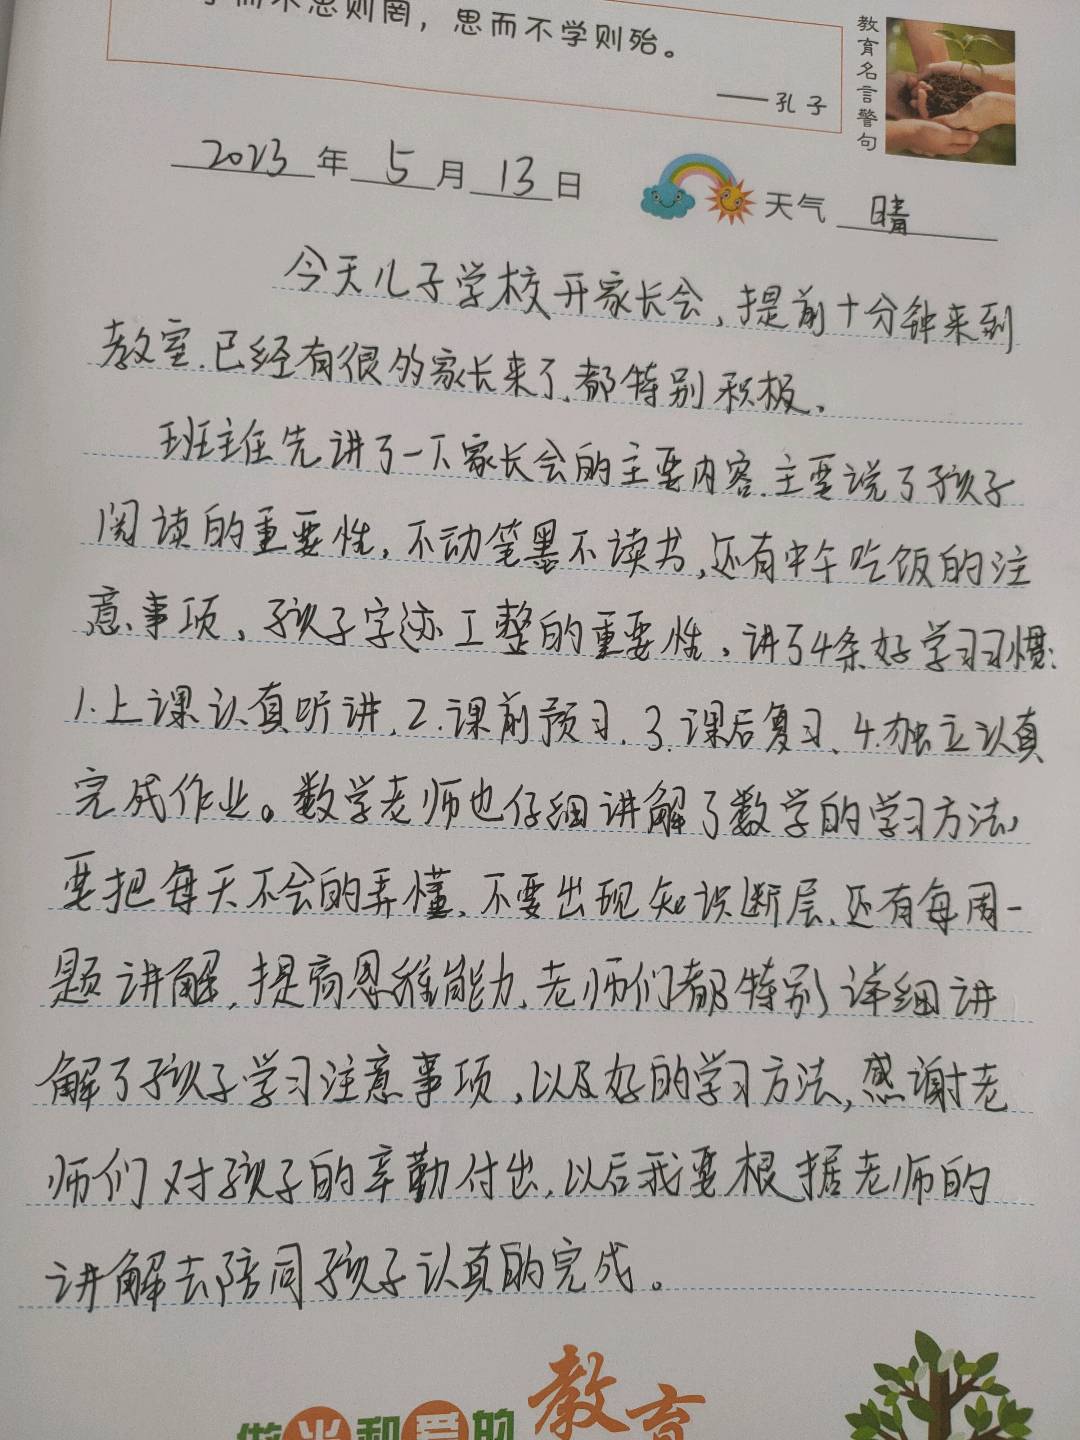 学而不思则罔，思而不学则殆。
——孔子
教育名言警句
2023年5月13日 天气 晴
今天儿子学校开家长会，提前十分钟来到
教室.已经有很多家长来了.都特别积极.
班主任先讲了一下家长会的主要内容.主要说了孩子
阅读的重要性，不动笔墨不读书,还有中午吃饭的注
意事项，孩子字迹工整的重要性，讲了4条好学习习惯:
1.上课认真听讲.2.课前预习.3.课后复习、4.独立认真
完成作业。数学老师也仔细讲解了数学的学习方法,
要把每天不会的弄懂.不要出现知识断层.还有每周一
题讲解,提高思维能力.老师们都特别详细讲
解了孩子学习注意事项,以及好的学习方法,感谢老
师们对孩子的辛勤付出,以后我要根据老师的
讲解去陪同孩子认真的完成。
做光和爱的教育